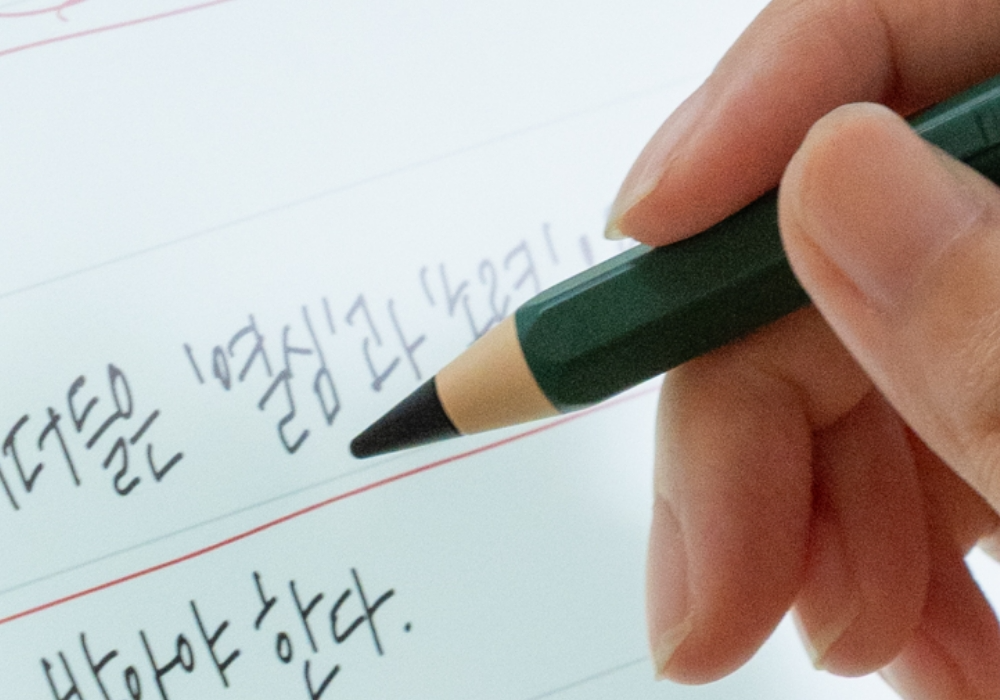 더들은 '열심'과 '노력'
받아야 한다.